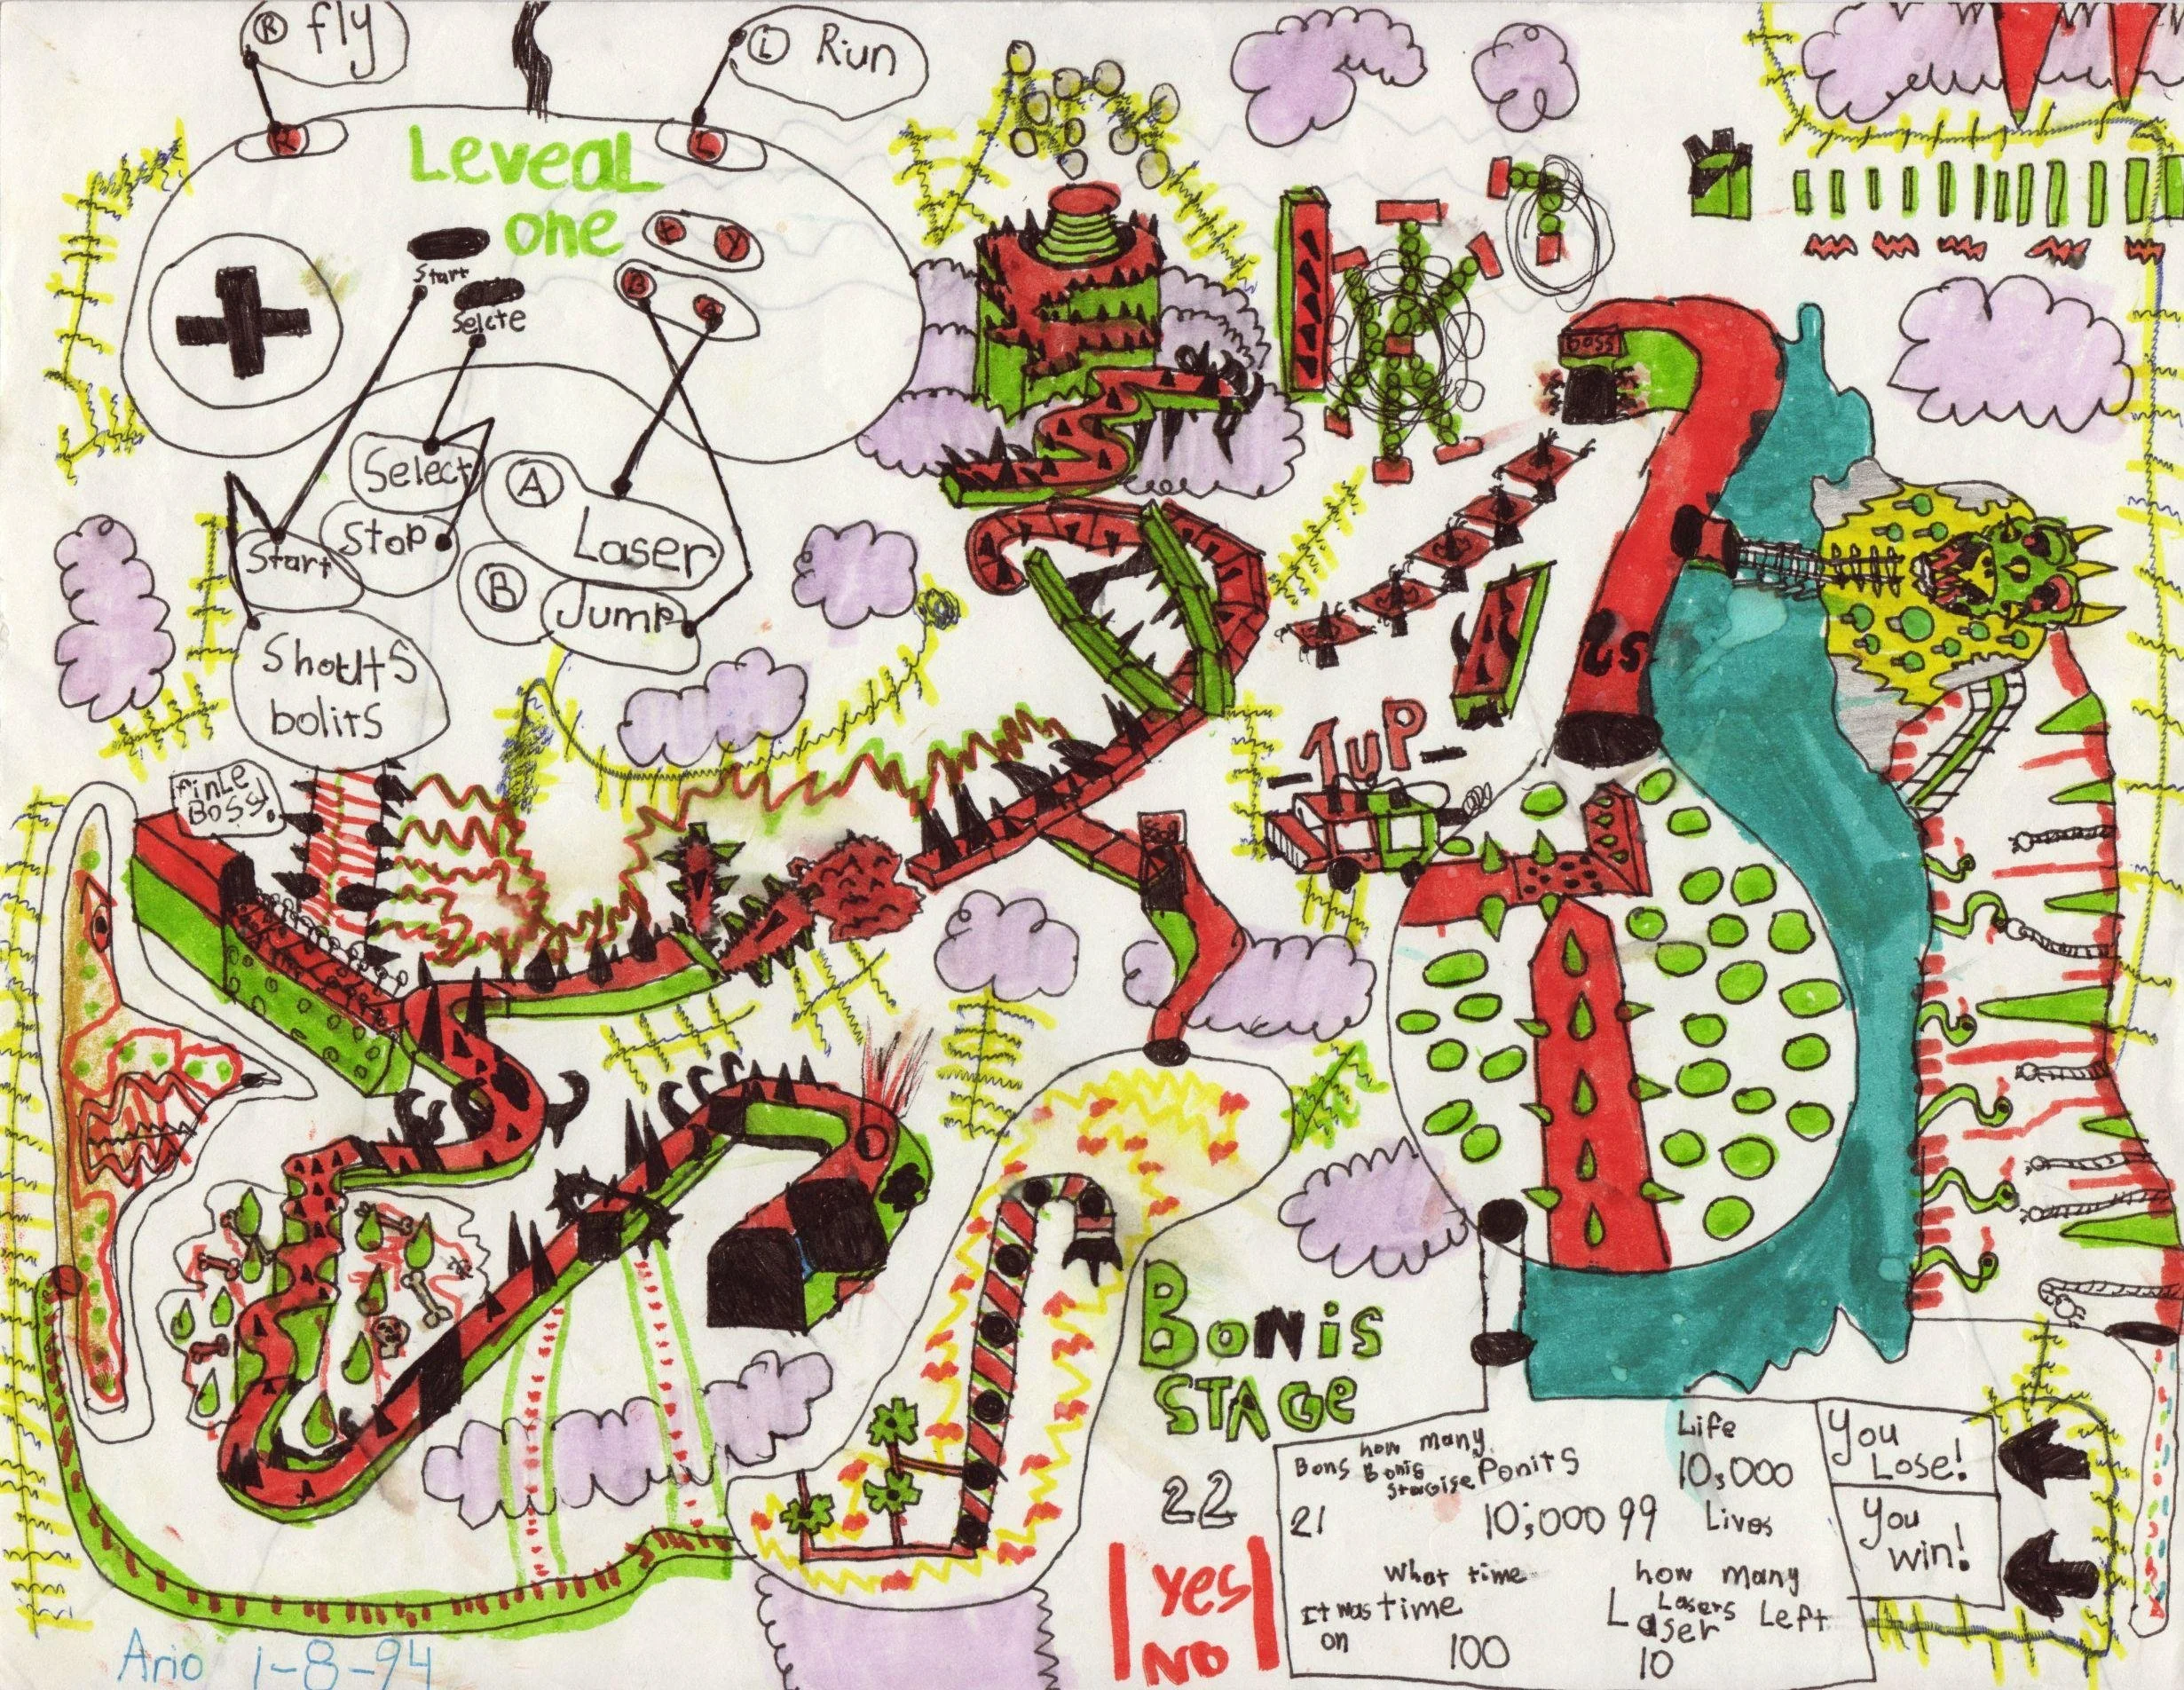 R fly
L Run
R
L
Leveal
one
X
Y
Start
Selcte
B
Select
Stop
Start
A
Laser
B
Jump
Shoults
bolits
finle
Boss!
Boss
1UP
Bonis
STAGe
22
Yes
No
how many
Bons Bonis Ponits
Stagise
21
10;000 99
Life
10,000
Lives
What time
It was time
on
100
how many
Lasers Left
Laser
10
You
Lose!
You
win!
Ario 1-8-94